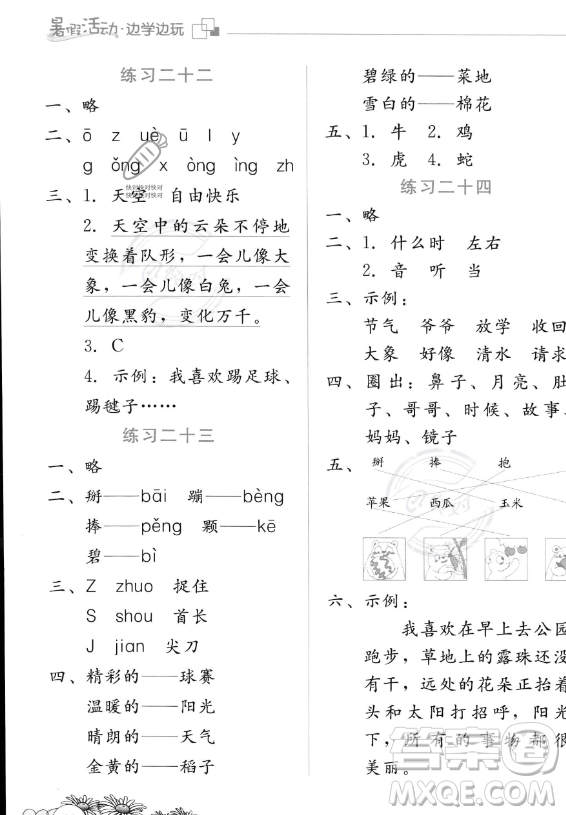 暑假活动·边学边玩
练习二十二
一、略
二、ō z uè ū l y
g ǒng x òng ìng zh
三、1. 天空 自由快乐
2. 天空中的云朵不停地
变换着队形，一会儿像大
象，一会儿像白兔，一会
儿像黑豹，变化万千。
3. C
4. 示例：我喜欢踢足球、
踢毽子……
练习二十三
一、略
二、掰——bāi 蹦——bèng
捧——pěng 颗——kē
碧——bì
三、Z zhuo 捉住
S shou 首长
J jian 尖刀
四、精彩的——球赛
温暖的——阳光
晴朗的——天气
金黄的——稻子
碧绿的——菜地
雪白的——棉花
五、1. 牛 2. 鸡
3. 虎 4. 蛇
练习二十四
一、略
二、1. 什么时 左右
2. 音 听 当
三、示例：
节气 爷爷 放学 收回
大象 好像 清水 请求
四、圈出：鼻子、月亮、肚
子、哥哥、时候、故事、
妈妈、镜子
五、掰 捧 抱
苹果 西瓜 玉米
六、示例：
我喜欢在早上去公园
跑步，草地上的露珠还没
有干，远处的花朵正抬着
头和太阳打招呼，阳光
下，所有的事物都很
美丽。
快对快对快对
快对快对快对